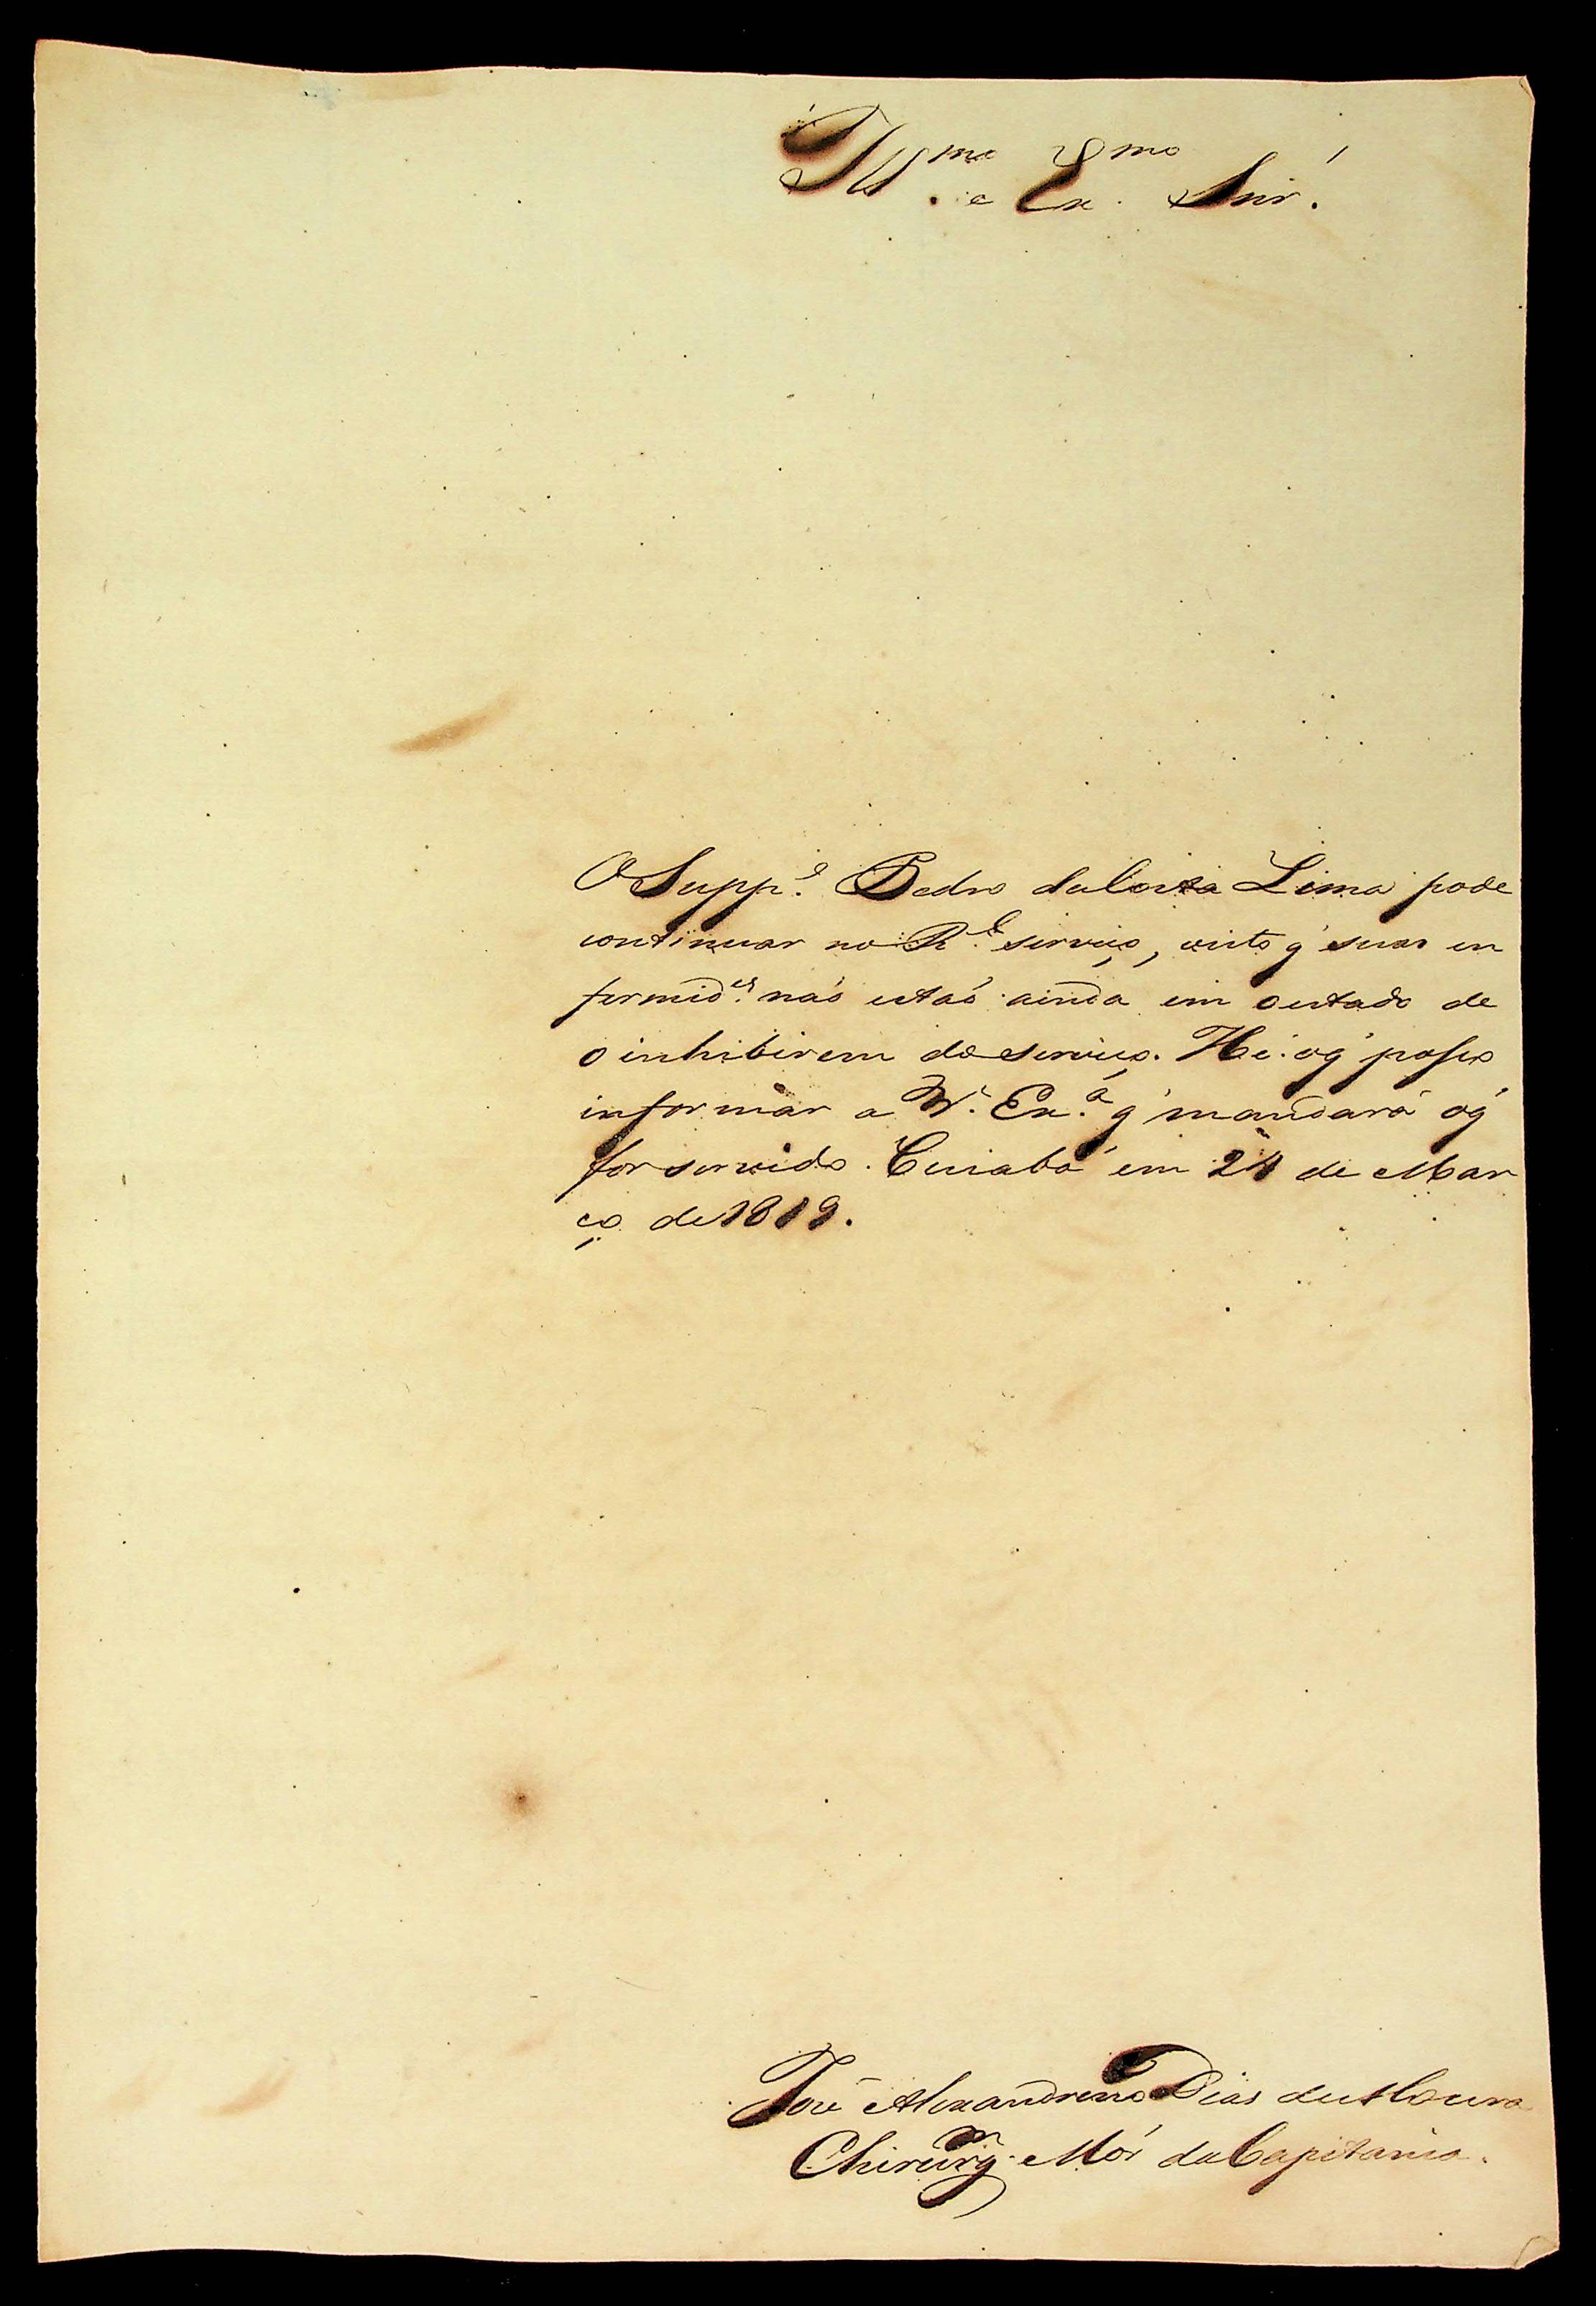 Ill.mo e Ex.mo Snr.
O Supp.e Pedro da Costa Lima pode
continuar no R.l serviço, visto q' suas en
fermid.es naõ estaõ ainda em oestado de
o inhibirem do serviço. He oq' posso
informar a V. Ex.a q' mandará oq'
for servido. Cuiabá em 24 de Mar
ço de 1819.
José Alexandreno Dias de Moura
Chirurg.m Mór da Capitania.